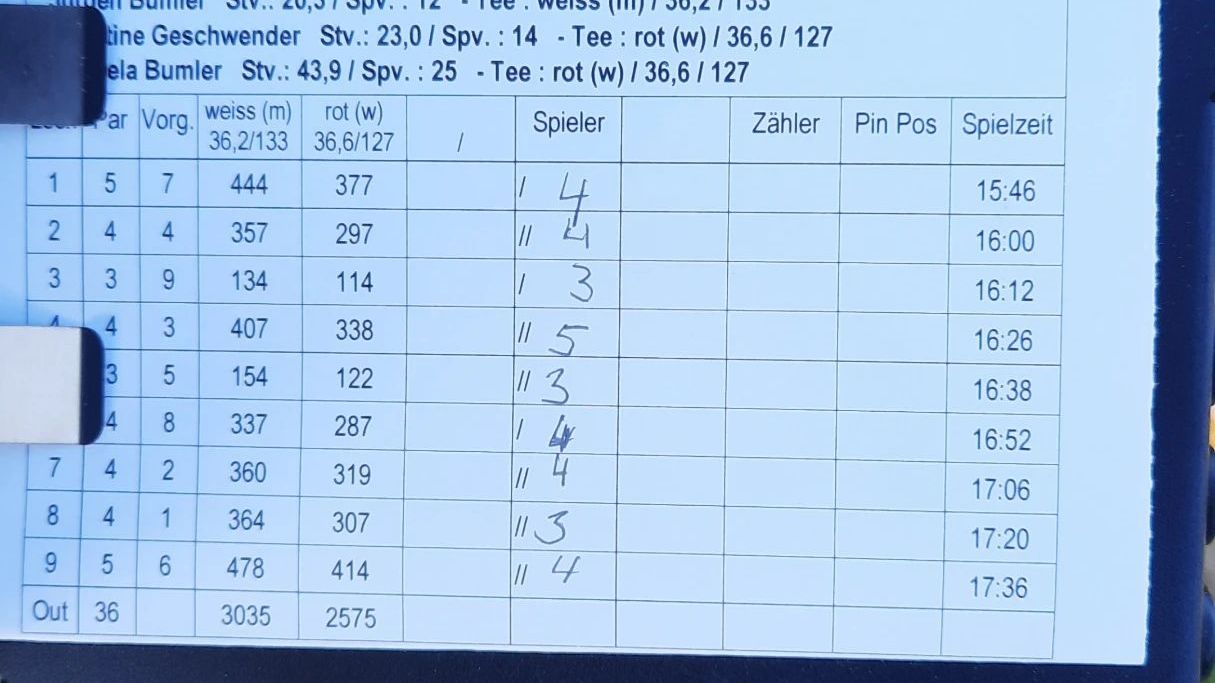 Bumler Stv.: 20,3 / Spv. : 12 - Tee : weiss (m) / 36,2 / 133
tine Geschwender Stv.: 23,0 / Spv. : 14 - Tee : rot (w) / 36,6 / 127
ela Bumler Stv.: 43,9 / Spv. : 25 - Tee : rot (w) / 36,6 / 127
Par Vorg. weiss (m) 36,2/133 rot (w) 36,6/127 / Spieler Zähler Pin Pos Spielzeit
1 5 7 444 377 / 4 15:46
2 4 4 357 297 // 4 16:00
3 3 9 134 114 / 3 16:12
4 4 3 407 338 // 5 16:26
3 5 154 122 // 3 16:38
4 8 337 287 / 4 16:52
7 4 2 360 319 // 4 17:06
8 4 1 364 307 // 3 17:20
9 5 6 478 414 // 4 17:36
Out 36 3035 2575